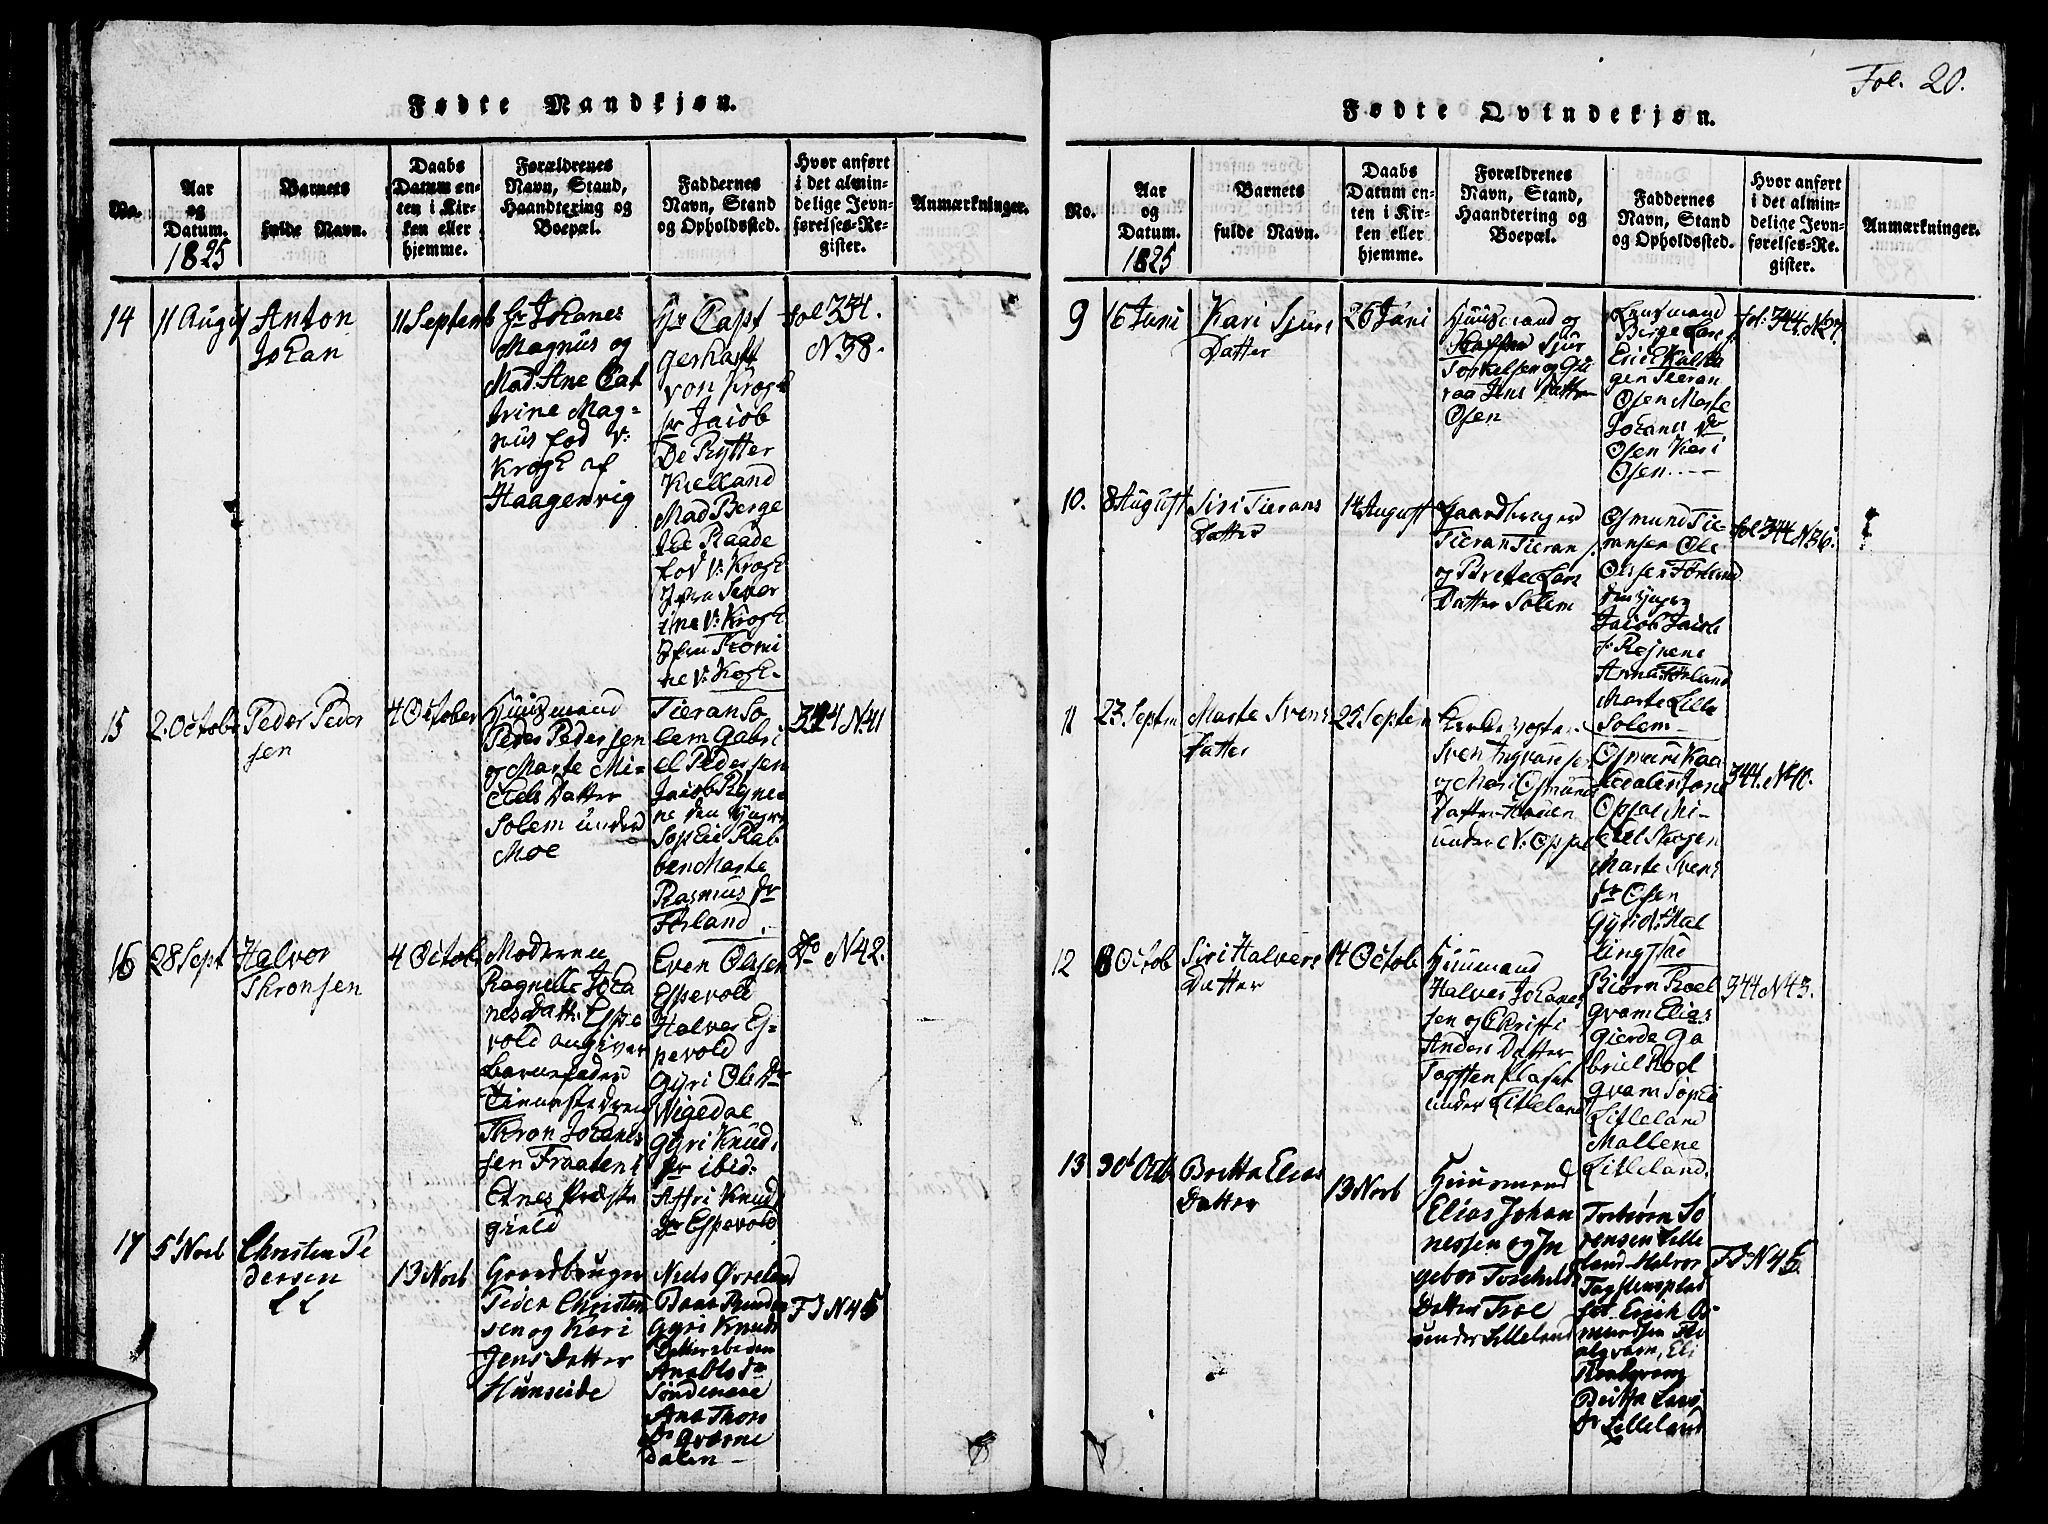 Fødte Mandkjøn.
No.
Aar
og
Datum.
1825
Barnets
fulde Navn.
Daabs
Datum en-
ten i Kir-
ken eller
hjemme.
Forældrenes
Navn, Stand,
Haandtering og
Boepæl.
Faddernes
Navn, Stand
og Opholdssted.
Hvor anført
i det almin-
delige Jevn-
førelses-Re-
gister.
Anmærkninger.
14
11 August
Anton
Johan
11 Septemb
Hr Johanes
Magnus og
Mad. Ane Cat
trine Mag=
nus fød v:
Krogh af
Haagenvig
Hr Capt
Gerhart
von Krogh
hr Jacob
De Rytter
Kielland
Mad Berge
fød v: Krogh
Jfru Sever
ine v: Krogh
Jfru Thomi
ne v: Krogh
fol 334.
N 38.
15
2. Octob
Peder Peder
sen
4 October
Huusmand
Peder Pedersen
og Marte Mi=
chels Datter
Solem under
Moe
Tieran So
lem Gabri
el Pedersen
Jacob Regne
ne den yngre
Sophie Rab
ben Marte
Rasmus dr
Førland.
334 N 41
16
28 Sept
Halvor
Thronsen
4 Octob
Moderen
Ragnille Joha
nes datt. Espe
vold angiver
Barnefader
Thron Johanes
sen Fraaten i
Etnes Præste
gield
Even Olsen
Espevold
Halver Es=
pevold
Gyri Ols dr
Wigedal
Gyri Knuds
dr ibid:
Knuds
dr Espevold
Do N 42.
17
5t Novb
Christen Pe
dersen
13 Novb
Gaardbruger
Peder Christen
sen og Kari
Jens datter
Hunseide
Niels Øvreland
Gyri Knuds
Datter
Søndenaae
Ana Thors
dr Qværne
dalen
Fd N 45
Fol. 20.
Fødte Qvindekjøn.
No.
Aar
og
Datum.
1825
Barnets
fulde Navn.
Daabs
Datum en-
ten i Kir-
ken eller
hjemme.
Forældrenes
Navn, Stand,
Haandtering og
Boepæl.
Faddernes
Navn, Stand
og Opholdssted.
Hvor anført
i det almin-
delige Jevn-
førelses-Re-
gister.
Anmærkninger.
9
16 Juni
Kari Sjurs
Datter
26 Juni
Huusmand og
Sjur
Torkelsen og Gu
roa Jens Datter
Øsen
Lensmand
Berge Lars
Erich
gen Tieran
Øsen Marte
Johanes dr
Øsen Kari
Øsen
fol. 344. N 27.
10.
8 August
Siri Tierans
Datter
14 August
Gaardbruger
Tieran Tieran
og Birthe Lars
Datter Solem
Osmund Tie-
ransen Ole
Olssen Førland
den yngre
Jacob Jacob
s. Regnene
Anna Førland
Marte Lille
Solem
fol 344 N 36.
11
23 Septem
Marte Svens
Datter
25 Septem
Sven Ingvarsse
og Mari Osmunds
Datter
under N. Opsal
Osmun Kaa
ledalen Jone
Opsal Mi-
chel Skogen
Marte Svens
dr Øsen
Gyri
344. N 40.
12
8 Octob
Siri Halvers
Datter
14 Octob
Huusmand
Halver Johanes
sen og Christi
Anders Datter
Togsten plaset
under Litleland
Biørn Roel
qvam Elias
Gierde Ga
briel Roel
qvam Sophi
Litleland
Mallene
Litleland.
344 N 43.
13
30t Octb
Britta Elias
Datter
13 Novb
Huusmand
Elias Johan
nessen og In
gebor Torkilds
Datter Troe
under Lilleland
Torbiørn Sø
rensen Lille
land Halvor
Togstenplad
set Erich Os
mundsen Ro
alqvam, Eli
Roalqvam
Britta Lars
dr Lilleland
Fd N 45.